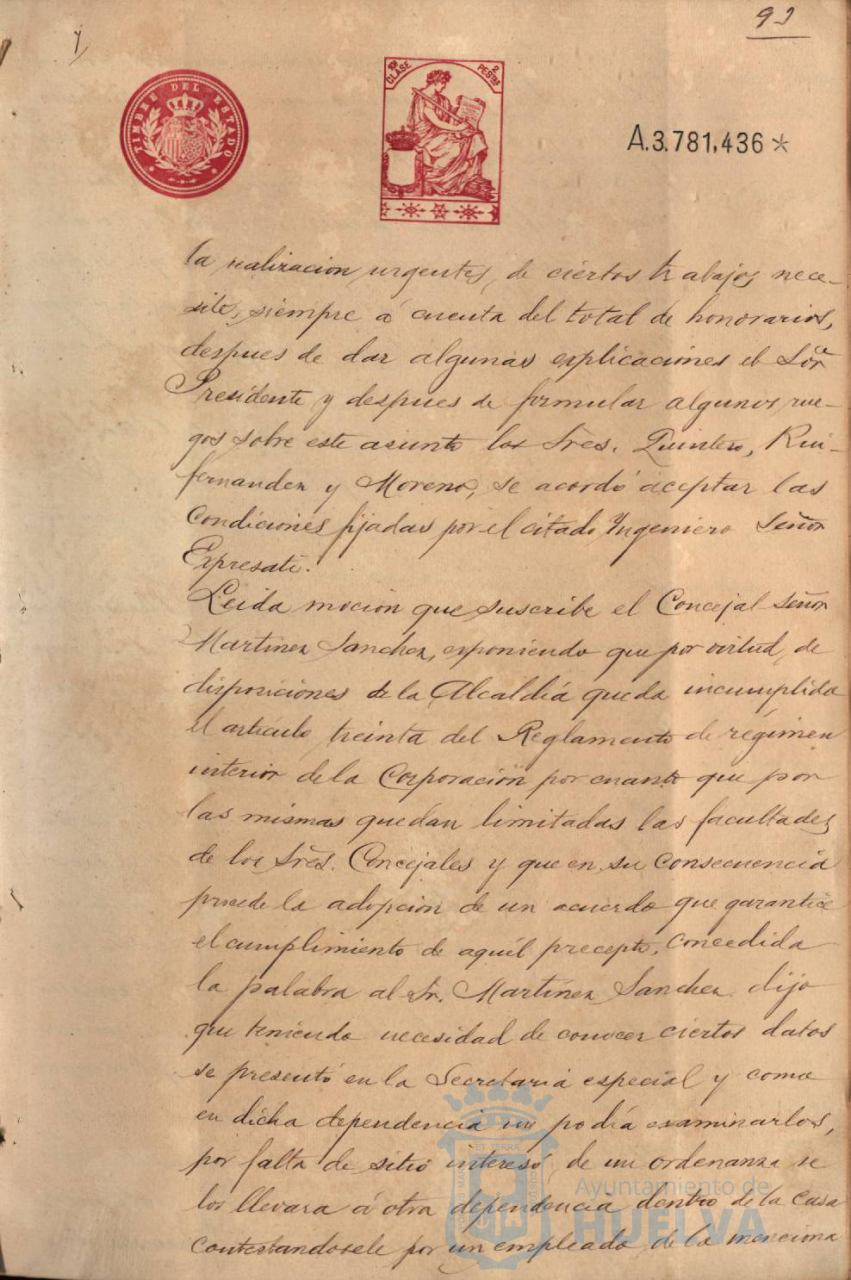 93
TIMBRE DEL ESTADO
10ª CLASE 2 PESTAS
A.3.781,436*
la realizacion urgentes, de ciertos trabajos nece-
site, siempre á cuenta del total de honorarios,
despues de dar algunas esplicaciones el Sōr
Presidente y despues de formular algunos rue-
gos sobre este asunto los Sres. Quintero, Rui-
fernandez y Moreno, se acordó aceptar las
condiciones fijadas por el citado Ingeniero Señor
Expresati.
Leida moción que suscribe el Concejal Señor
Martinez Sanchez, esponiendo que por virtud, de
disposiciones de la Alcaldía queda incumplida
el artículo treinta del Reglamento de régimen
interior de la Corporación por cuanto que por
las mismas quedan limitadas las facultades
de los Sres. Concejales y que en su consecuencia
procede la adopcion de un acuerdo que garantice
el cumplimiento de aquél precepto, concedida
la palabra al Sr. Martinez Sanchez dijo
que teniendo necesidad de conocer ciertos datos
se presentó en la Secretaria especial y como
en dicha dependencia no podía examinarlos,
por falta de sitio interesó, de un ordenanza se
los llevara á otra dependencia dentro de la casa
contestandosele por un empleado de la menciona
Ayuntamiento de
HUELVA